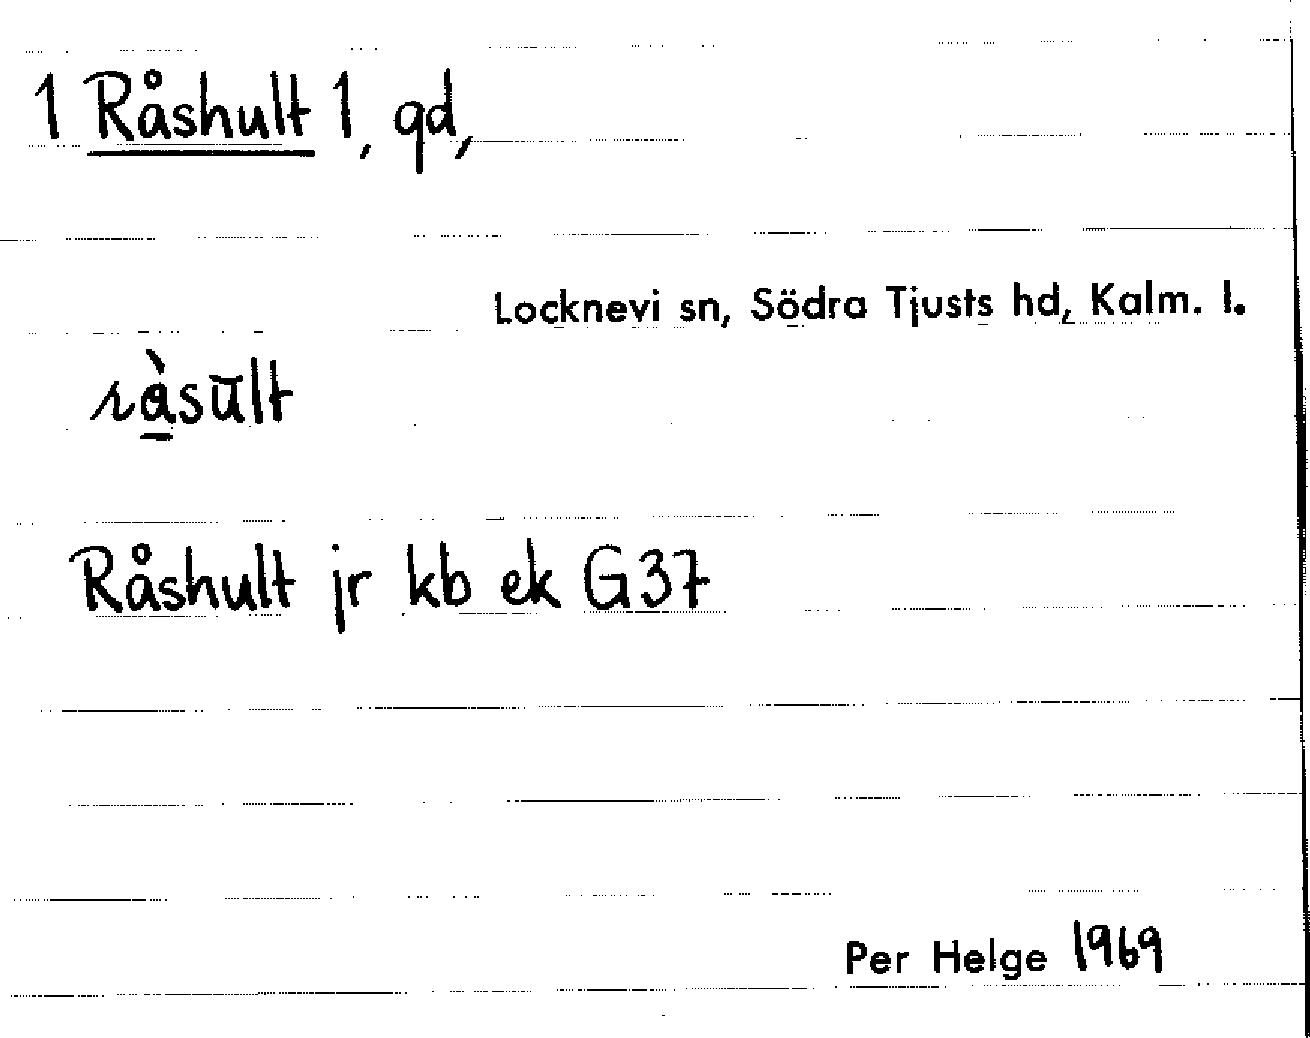 1 Råshult 1, gd,
Locknevi sn, Södra Tjusts hd, Kalm. l.
rà̱sūlt
Råshult jr kb ek G37
Per Helge 1969